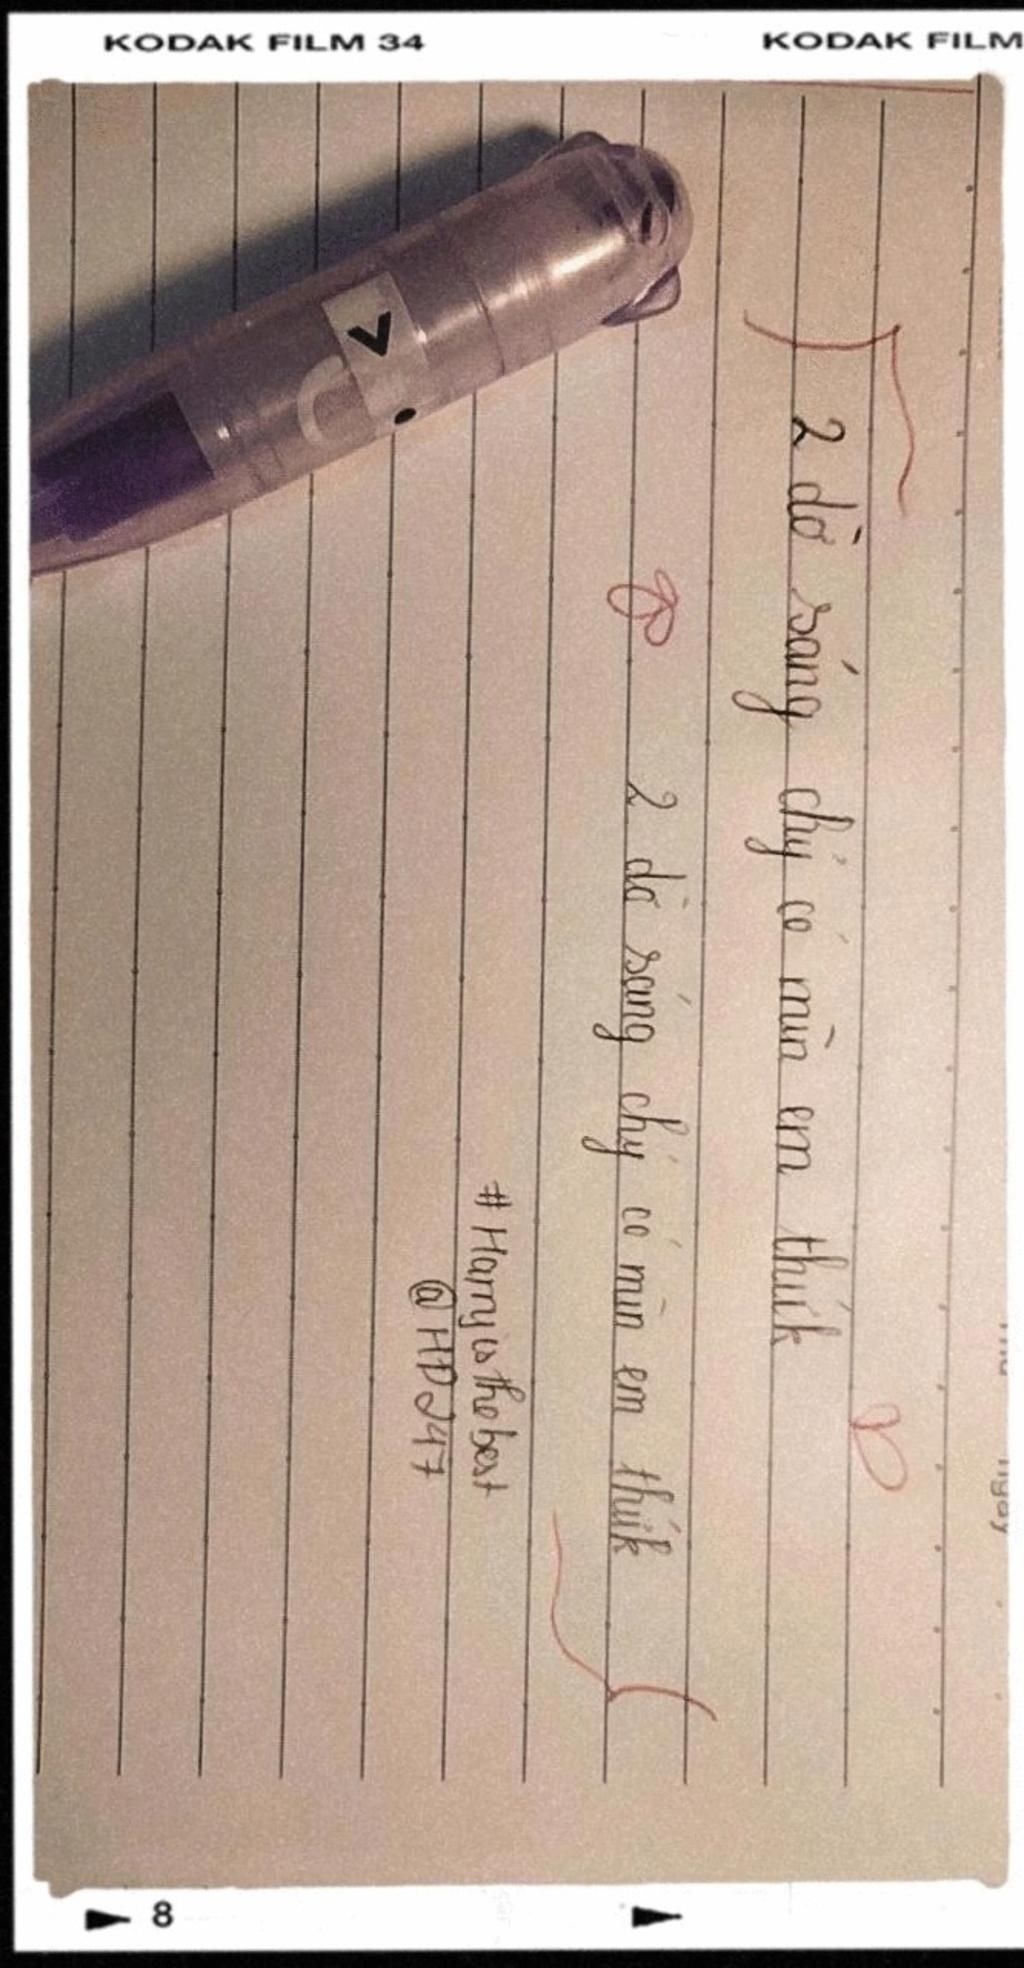 KODAK FILM 34
KODAK FILM
2 dờ sáng chỷ có mìn em thứk
2 dờ sáng chỷ có mìn em thứk
# Harry is the best
@HD247
8